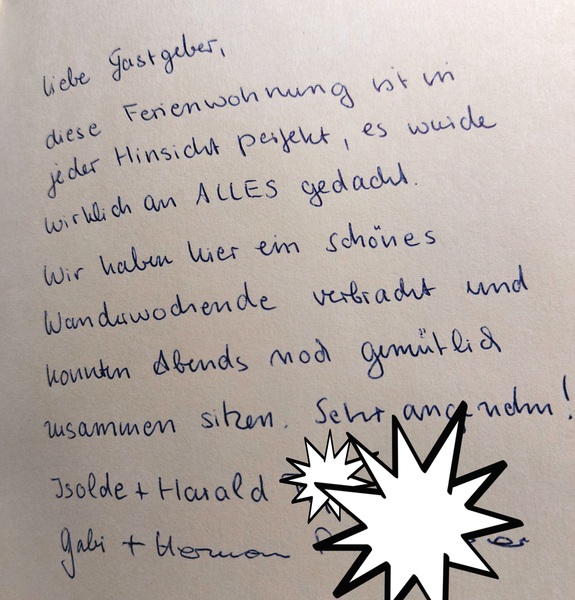 liebe Gastgeber,
diese Ferienwohnung ist in
jeder Hinsicht perfekt, es wurde
wirklich an ALLES gedacht.
Wir haben hier ein schönes
Wanderwochende verbracht und
konnten Abends noch gemütlich
zusammen sitzen. Sehr angenehm!
Isolde + Harald
Gabi + Herman